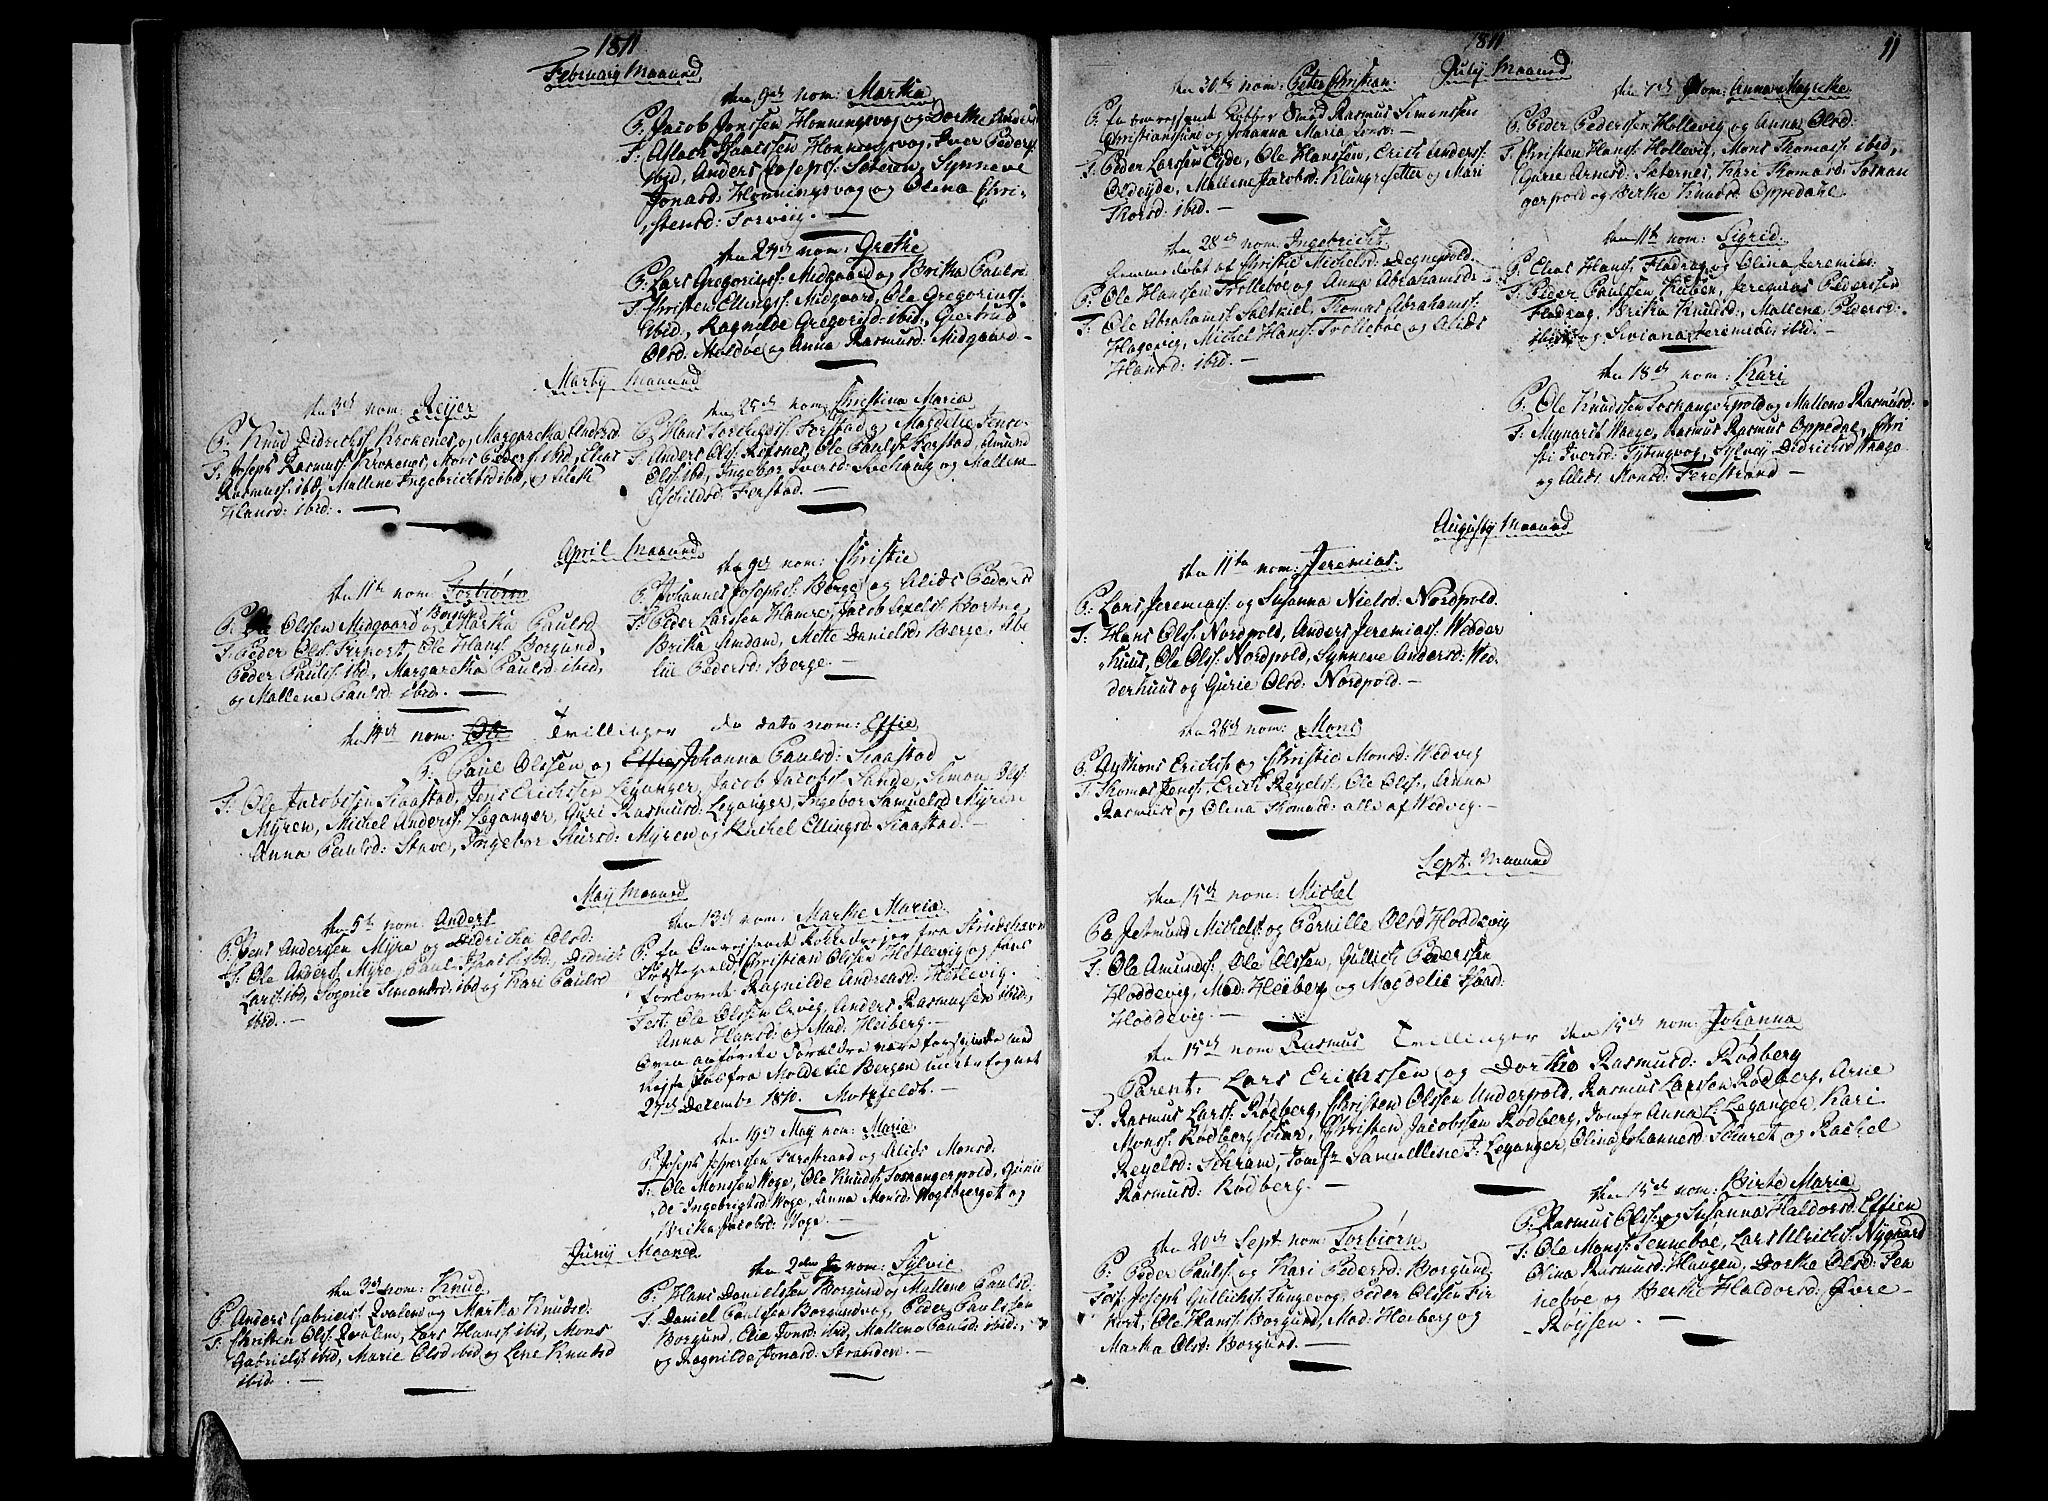 1811
Februarij Maaned
den 9de nom: Martha
P. Jacob Jonssen Honningsvog og Dorthe Anders
F. Aslach Isaacssen Honningsvog, Iver Peders:
ibid, Anders Josephs: Seteren, Synneve
Jonasd: Honningsvog og Olena Chri-
stensd: Torvig. —
den 24de nom: Grethe
P. Lars Gregoriuss: Midgaard og Britha Paulsd
F. Christen Ellings: Midgaard, Ole Gregoriuss:
ibid, Ragnilde Gregorisd: ibid, Giertrud
Olsd: Moldøe og Anna Rasmusd: Midgaard —
Marty Maaned
den 3de nom: Reijer
P. Knud Didrichs: Krokenes og Margaretha Andersd
F. Joseph Rasmuss: Krokenes, Mons Peders: ibid, Elias
Rasmuss: ibid, Mallene Ingebrichtsd ibid, og
Hansd: ibid. —
den 25de nom: Christina Maria
P. Hans Torchilds: Forstad og Magdelie Jens
F. Anders Ols: Refsnes, Ole Pauls: Forstad, Amund
Ols: ibid, Ingebor Iversd: og Mallene
Aschildsd: Forstad. —
April Maaned
den 11te nom: Torbiørn
P. Ole Olssen Midgaard Borgund og Martha Paulsd
F. Peder Ols: , Ole Hans: Borgund,
Peder Pauls: ibd, Margaretha Paulsd ibid,
og Mallene Paulsd ibid. —
den 9de nom: Christie
P. Johannes Josephs: Berge og Alids Pedersd
F. Peder Larssen Hamre, Jacob Axels: Bortne,
Britha Amdam, Mette Danielsd: Berge, Abe
lue Pedersd: Berge. —
den 14de nom: Ole Tvillinger do dato nom: Effie
P. Paul Olssen og Johanna Paulsd: Staastad
F. Ole Jacobssen Staastad, Jens Erichssen Leganger, Jacob Jacobs: Sande, Simon Ols:
Myren, Michel Anders: Leganger, Guri Rasmusd: Leganger, Ingebor Samuelsd Myren
Anna Paulsd: Stave, Ingebor Siursd: Myren og Rachel Ellingsd: Staastad. —
May Maaned
den 5te nom: Anders
P. Jens Andersen Myre og Didricha Olsd:
F. Ole Anders: Myre, Paul ibd: Didrich
Lars: ibd, Sognie Simonsd: ibd og Kari Paulsd
ibid. —
den 13de nom: Marthe Maria
P. fra Strudshavn
Præstegield Christian Olssen Hollevig og hans
forlovede Ragnilde Andreasd: Hollevig.
Test: Ole Olssen Ervig, Anders Rasmussen ibid,
Anna Hansd: og Mad. Heiberg. —
Oven anførte Forældre være forsiinede med
Reise Pas fra Molde til Bergen undertegnet
27de December 1810. Motzfeldt. —
den 19de May nom: Maria
P. Joseph Jespersen Farestrand og Alids Monsd:
F: Ole Monssen Woge, Ole Knuds: Toskangerpold, Guru
De Ingebrigtsd Woge, Anna Monsd: Vogtberget og
Britha Jacobsd: Woge. —
Junij Maaned
den 3de nom: Knud
P. Anders Gabriels: Qvalem og Martha Knudsd:
F. Christen Ols: Qvalem, Lars Hans: ibid, Mons
Gabriels: ibid, Marie Olsd ibid og Lene Knudsd
ibid. —
den 2den nom: Sylvie
P. Hans Danielssen Borgund og Mallene Paulsd:
F. Daniel Paulssen Borgund og Peder Paulssen
Borgund, Elie Jonsd: ibid, Mallene Paulsd: ibid:,
og Ragnilde Jonasd: Stranden. —
1811
11
July Maaned
den 30te nom: Peter Christian.
P. fra omreisende Kobber Smed Rasmus Simonssen
Christiansund og Johanna Maria —
F. Peder Larssen Eyde, Ole Hanssen, Erich Anders:
Oldeyde, Mallene Jacobsd: Klungresetter og Mari
Thorsd: ibid. —
den 28de nom: Ingebricht
hiemme døbt af Christie Michelsd: Degnepold.
P. Ole Hanssen Trolleboe og Anna Abrahamsd: —
F. Ole Abrahams: Saltkiel, Thomas Abrahams:
Hagevig, Michel Hans: Trolleboe og Alids
Hansd: ibid. —
den 7de nom: Anna Magrethe.
P. Peder Pederssen Hollevig og Anna Olsd:
F. Christen Hans: Hollevig, Mons Thomas: ibid,
Gurie Arnesd: Seternes, Kari Thomasd: Toskan
gerpold og Birthe Knudsd Oppedahl.
den 11te nom: Sigrid.
P. Elias Hans: Fladrag og Olina Jeremias:
F. Peder Paulssen Kuben, Jeremias Pederssen
Fladrag, Britha Knudsd:, Mallene Pedersd:
ibid og Siviana Jeremiasd: ibid. —
den 18de nom: Kari
P. Ole Knudssen Toskangerpold og Mallene Rasmusd.
F. Mignarit Woege, Rasmus Rasmus Oppedal, Chri
sti Iversd: , Sylvey Didrichsd Woge
og Alids Monsd: Ferestrand —
Augusty Maaned
den 11te nom: Jeremias.
P. Lars Jeremias: og Susanna Nielsd: Nordpold.
F: Hans Ols: Nordpold, Anders Jeremias: Wedder
huus, Ole Ols: Nordpold, Synneve Andersd: Wed-
derhuus og Gurie Olsd: Nordpold. —
den 28de nom: Mons
P. Anthons Erichs: og Christie Monsd: Wedvig
F. Thomas Jons:, Erich Regels:, Ole Ols:, Anna
Rasmusd og Olena Thomasd: alle af Wedvig. —
Sept: Maaned
den 15de nom: Michel
P. Jetmund Michels: og Pernille Olsd Hoddevig
F. Ole Amunds:, Ole Olssen, Gullich Pederssen
Hoddevig, Mad: Heiberg og Magdelie Isaacsd:
Hoddevig. —
den 15de nom Rasmus Tvillinger den 15de nom: Johanna
Parent. Lars Erichssen og Dorthea Rasmusd: Rødberg
F. Rasmus Lars: Rødberg, Christen Olssen Underpold, Rasmus Larssen Rødberg, Arne
Monss: Rødbergsetter, Christen Jacobssen Rødberg, Jomfr Anna L: Leganger, Kari
Regelsd: Schram, Jomfr Samuelline F: Leganger, Olina Johannesd: og Rachel
Rasmusd: Rødberg. —
den 20de Sept nom: Torbiørn
P. Peder Pauls: og Kari Pedersd: Borgund
Test: Joseph Gullichs: Tungevog, Peder Olssen Fir
, Ole Hans: Borgund, Mad: Heiberg og
Martha Olsd: Borgund. —
den 15de nom: Birte Maria
P. Rasmus Ols: og Susanna Haldorsd: Effien
F. Ole Mons: Senneboe, Lars Ulrichs: Nygaard
Olina Rasmusd: Haugen, Dorthe Olsd: Sen
neboe og Berthe Haldorsd: Øvre —
Røysen. —